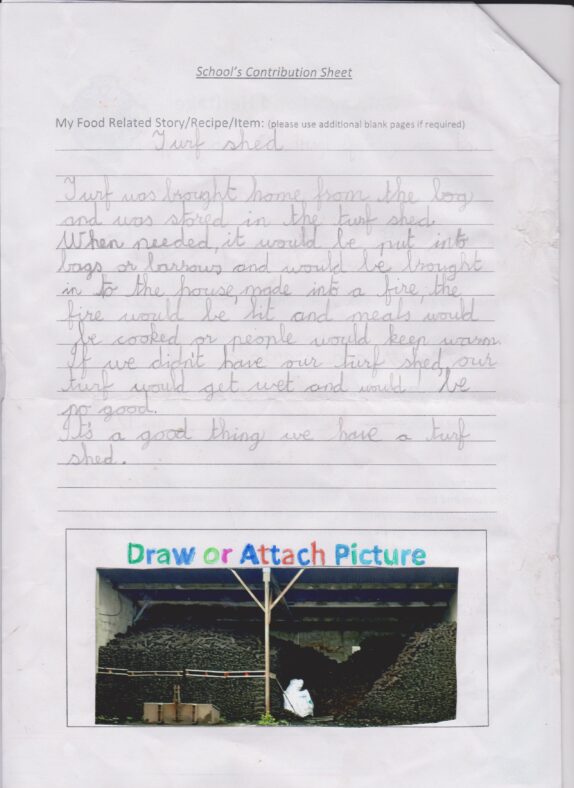 School's Contribution Sheet
My Food Related Story/Recipe/Item: (please use additional blank pages if required)
Turf shed
Turf was brought home from the bog
and was stored in the turf shed.
When needed, it would be put into
bags or barrows and would be brought
in to the house, made into a fire, the
fire would be lit and meals would
be cooked or people would keep warm.
If we didn't have our turf shed, our
turf would get wet and would be
no good.
It's a good thing we have a turf
shed.
Draw or Attach Picture